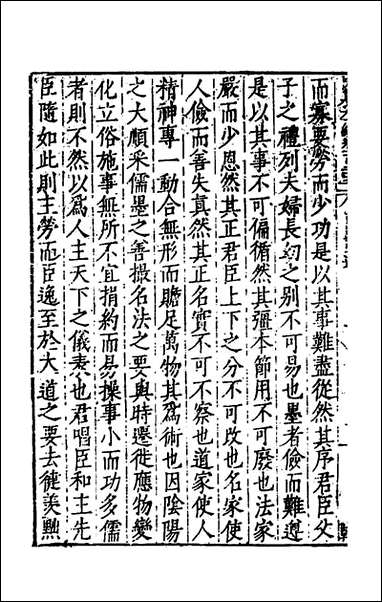 而寡要勞而少功是以其事難盡從然其序君臣父
子之禮列夫婦長幼之别不可易也墨者儉而難遵
是以其事不可偏循然其彊本節用不可廢也法家
嚴而少恩然其正君臣上下之分不可改也名家使
人儉而善失真然其正名實不可不察也道家使人
精神專一動合無形而贍足萬物其爲術也因陰陽
之大順采儒墨之善撮名法之要與時遷徙應物變
化立俗施事無所不宜指約而易操事小而功多儒
者則不然以爲人主天下之儀表也君唱臣和主先
臣隨如此則主勞而臣逸至於大道之要去健羡黜